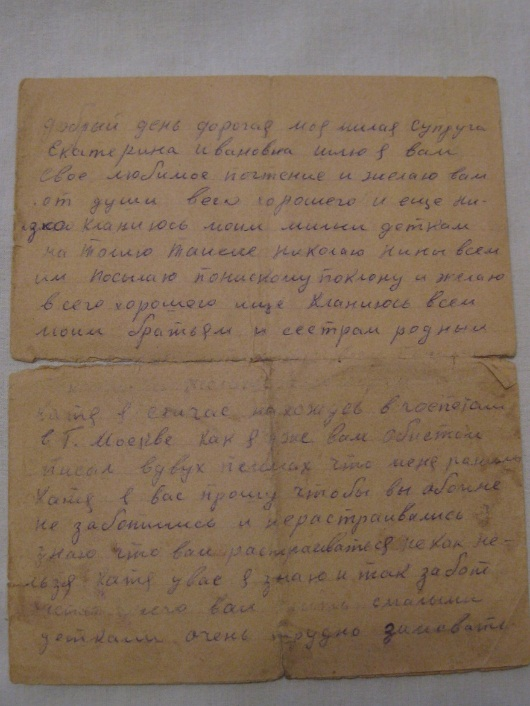 добрый день дорогая моя милая супруга
Екатерина ивановна шлю я вам
свое любимое почтение и желаю вам
от души всего хорошего и еще ни-
зко кланиюсь моим милим деткам
Тоисие Николаю нины всем
им посылаю понискому поклону и желаю
всего хорошего ище кланиюсь всем
моим братьям и сестрам родным
катя я сичас нахожусь в госпотам
в Г. Москве как я уже вам
писал вдвух писмах что мене
катя я вас прошу чтобы вы обомне
не заботились и нерастраивались
знаю что вам растраиватся некак не-
льзя катя увас я знаю и так забот
вам смалыми
детками очень трудно зимовать